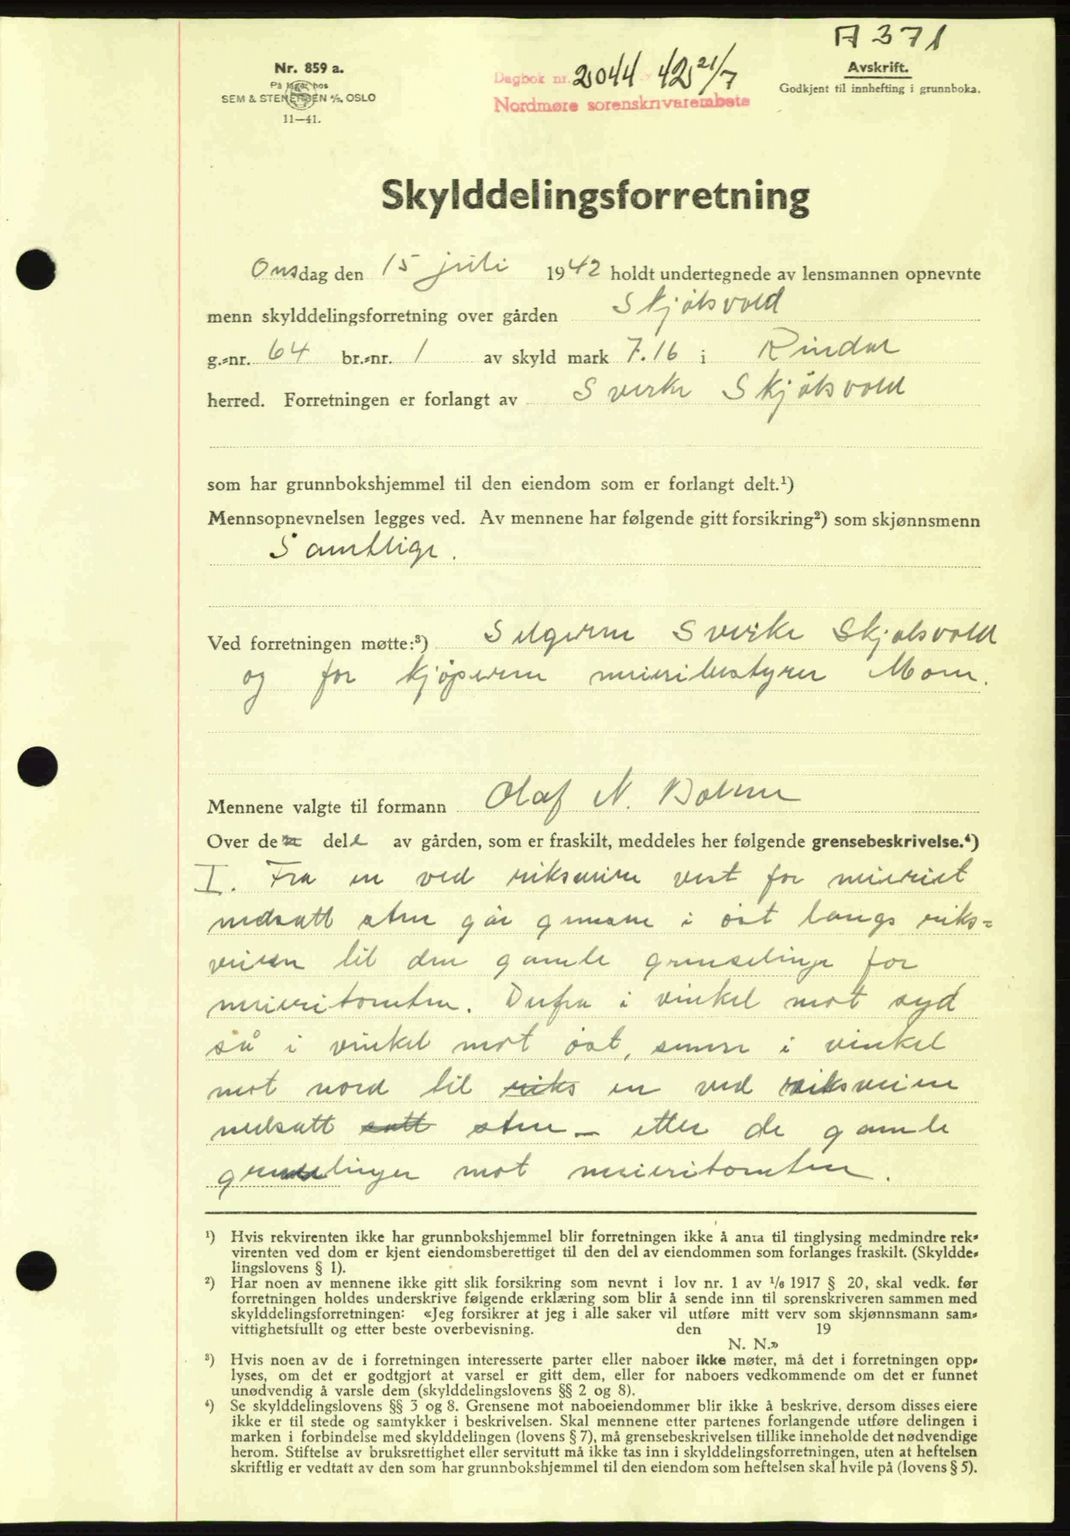 A 371
Nr. 859 a.
På lager hos
SEM & STENERSEN A/S, OSLO
11—41.
Dagbok nr. 2044 42 21/7
Nordmøre sorenskrivarembete
Avskrift.
Godkjent til innhefting i grunnboka.
Skylddelingsforretning
Onsdag den 15 juli 1942 holdt undertegnede av lensmannen opnevnte
menn skylddelingsforretning over gården Skjölsvold
g.-nr. 64 br.-nr. 1 av skyld mark 7.16 i Rindal
herred. Forretningen er forlangt av Sverke Skjölsvold
som har grunnbokshjemmel til den eiendom som er forlangt delt.¹)
Mennsopnevnelsen legges ved. Av mennene har følgende gitt forsikring²) som skjønnsmenn
Samtlige.
Ved forretningen møtte:³) Selgeren Sverke Skjølsvold
og for kjöperen meieribestyrer Moen.
Mennene valgte til formann Olaf N. Bolme
Over de dele av gården, som er fraskilt, meddeles her følgende grensebeskrivelse.⁴)
I. Fra en ved riksveien vest for meieriet
nedsatt sten går grensen i öst langs riks=
veien til den gamle grenselinje for
meieritomten. Derfra i vinkel mot syd
så i vinkel mot öst, senere i vinkel
mot nord til riks en ved riksveien
nedsatt satt sten — etter de gamle
grenselinjer mot meieritomten.
¹) Hvis rekvirenten ikke har grunnbokshjemmel blir forretningen ikke å anta til tinglysing medmindre rek-
virenten ved dom er kjent eiendomsberettiget til den del av eiendommen som forlanges fraskilt. (Skyldde-
lingslovens § 1).
²) Har noen av mennene ikke gitt slik forsikring som nevnt i lov nr. 1 av 1/6 1917 § 20, skal vedk. før
forretningen holdes underskrive følgende erklæring som blir å sende inn til sorenskriveren sammen med
skylddelingsforretningen: «Jeg forsikrer at jeg i alle saker vil utføre mitt verv som skjønnsmann sam-
vittighetsfullt og etter beste overbevisning. den 19
N. N.»
³) Hvis noen av de i forretningen interesserte parter eller naboer ikke møter, må det i forretningen opp-
lyses, om det er godtgjort at varsel er gitt dem, eller for naboers vedkommende om det er funnet
unødvendig å varsle dem (skylddelingslovens §§ 2 og 8).
⁴) Se skylddelingslovens §§ 3 og 8. Grensene mot naboeiendommer blir ikke å beskrive, dersom disses eiere
ikke er til stede og samtykker i beskrivelsen. Skal mennene etter partenes forlangende utføre delingen i
marken i forbindelse med skylddelingen (lovens § 7), må grensebeskrivelsen tillike inneholde det nødvendige
herom. Stiftelse av bruksrettighet eller servitutt må ikke tas inn i skylddelingsforretningen, uten at heftelsen
skriftlig er vedtatt av den som har grunnbokshjemmel til den eiendom som heftelsen skal hvile på (lovens § 5).